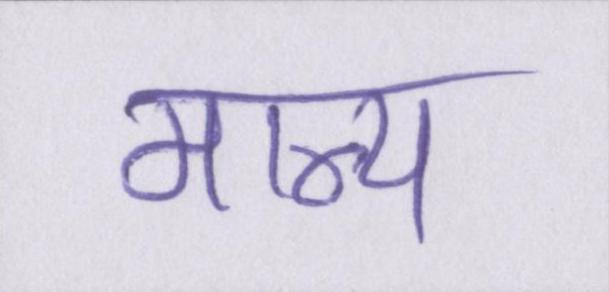 मान्य